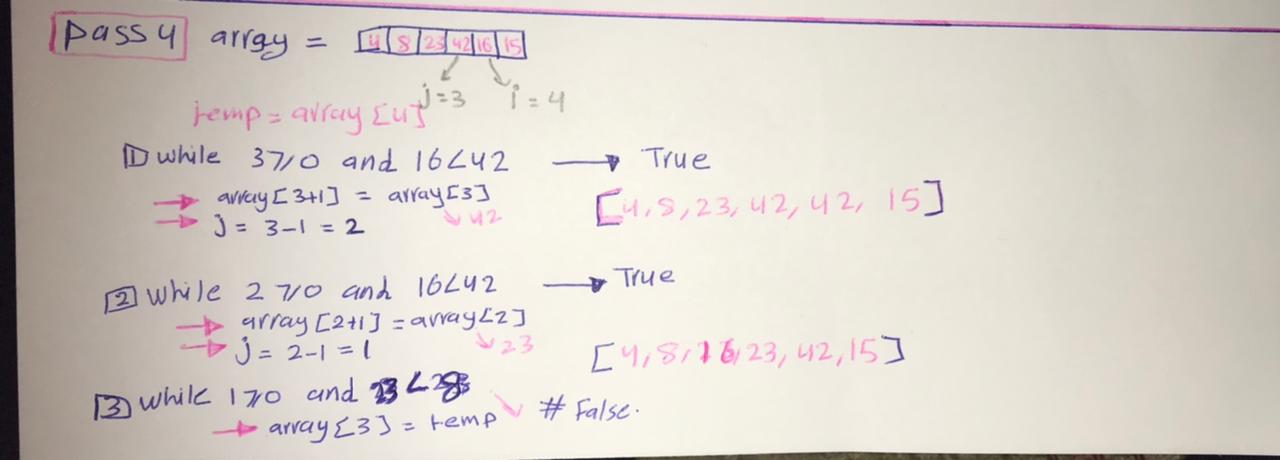 pass 4 array = 4 8 23 42 16 15
j=3 i=4
temp = array [4]
1 while 3>=0 and 16<42 → True
→ array[3+1] = array[3]
→ j = 3-1 = 2 ↘ 42 [4,8,23,42,42, 15]
2 while 2>=0 and 16<42 → True
→ array [2+1] = array[2]
→ j = 2-1 = 1 ↘ 23 [4,8,16,23,42,15]
3 while 1>=0 and < # False.
→ array[3] = temp